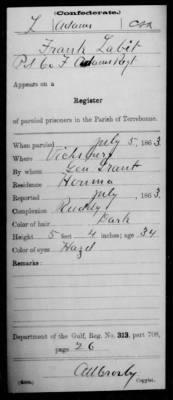 (Confederate.)
L | Adams | CSA
Frank Labit
Pvt Co F Adams Regt
Appears on a
Register
of paroled prisoners in the Parish of Terrebonne.
When paroled July 5, 1863.
Where Vicksburg
By whom Gen Grant
Residence Houma
Reported July, 1863.
Complexion Ruddy
Color of hair Dark
Height 5 feet 4 inches; age 34
Color of eyes Hazel
Remarks:
Department of the Gulf, Reg. No. 313, part 708,
page 26
Copyist.